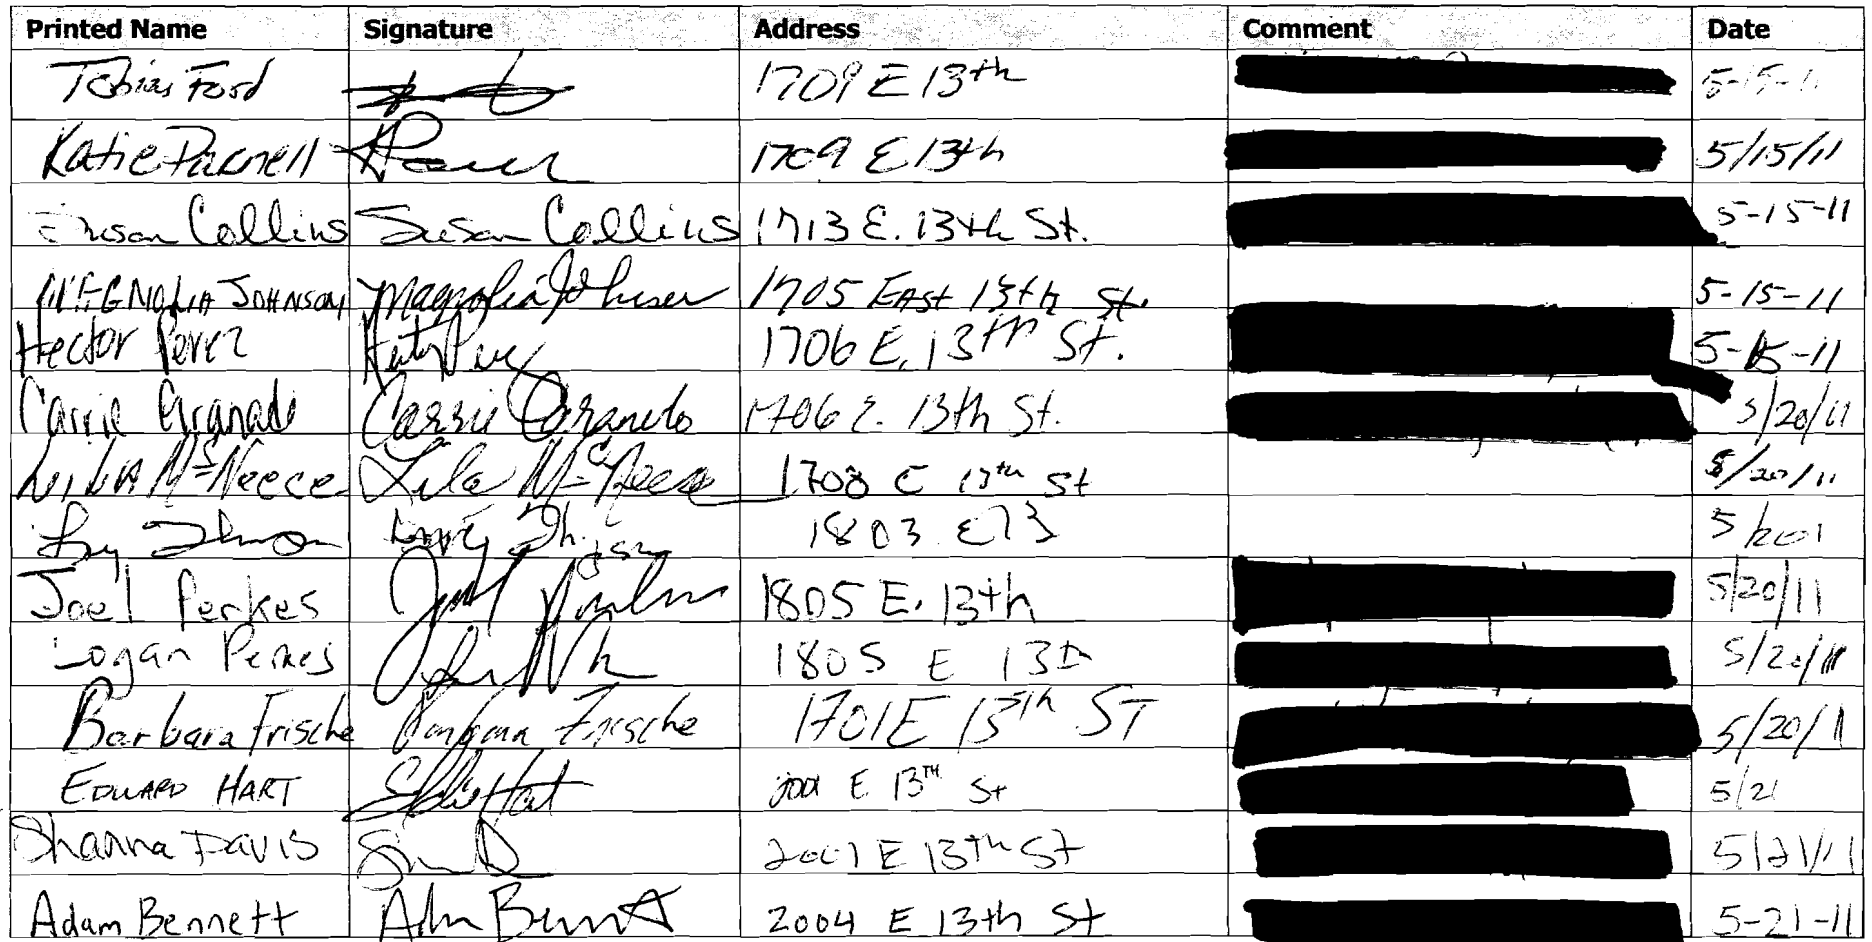 Printed Name Signature Address Comment Date
Tobias Ford 1709 E 13th 5-15-11
Katie Parnell 1709 E 13th 5/15/11
Susan Collins Susan Collins 1713 E. 13th St. 5-15-11
MAGNOLIA JOHNSON Magnolia Johnson 1705 EAST 13th St. 5-15-11
Hector Perez 1706 E. 13th St. 5-15-11
Carrie Granado Carrie Granado 1706 E. 13th St. 5/20/11
LILA McNeece Lila McNeece 1708 E 13th St 5/20/11
1803 E 13
Joel Perkes 1805 E. 13th 5/20/11
Logan Perkes 1805 E 13th 5/20/11
Barbara Frische Barbara Frische 1701 E 13th ST 5/20/11
EDWARD HART Eddie Hart E 13TH St 5/21
Shanna Davis 2001 E 13th St 5/21/11
Adam Bennett Adam Bennett 2004 E 13th St 5-21-11